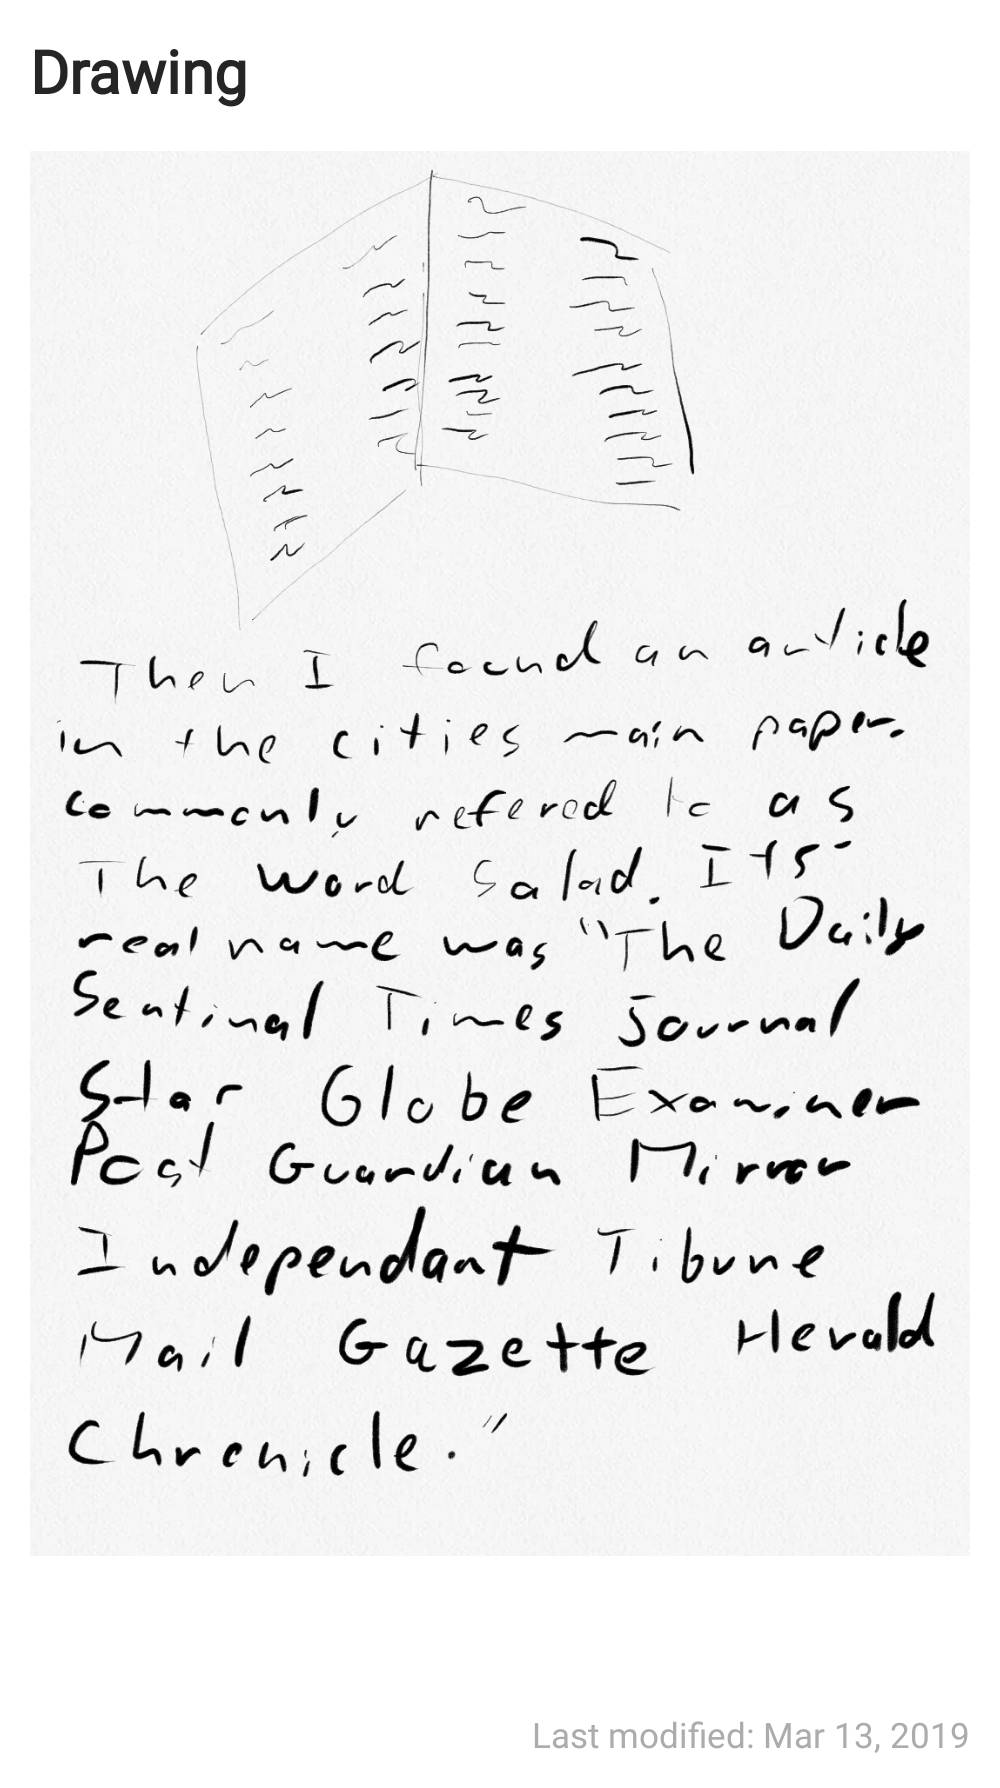 Drawing
Then I found an article
in the cities main paper.
commonly refered to as
The Word Salad. Its
real name was "The Daily
Sentinal Times Journal
Star Globe Examiner
Post Guardian Mirror
Independant Tibune
Mail Gazette Herald
Chronicle."
Last modified: Mar 13, 2019